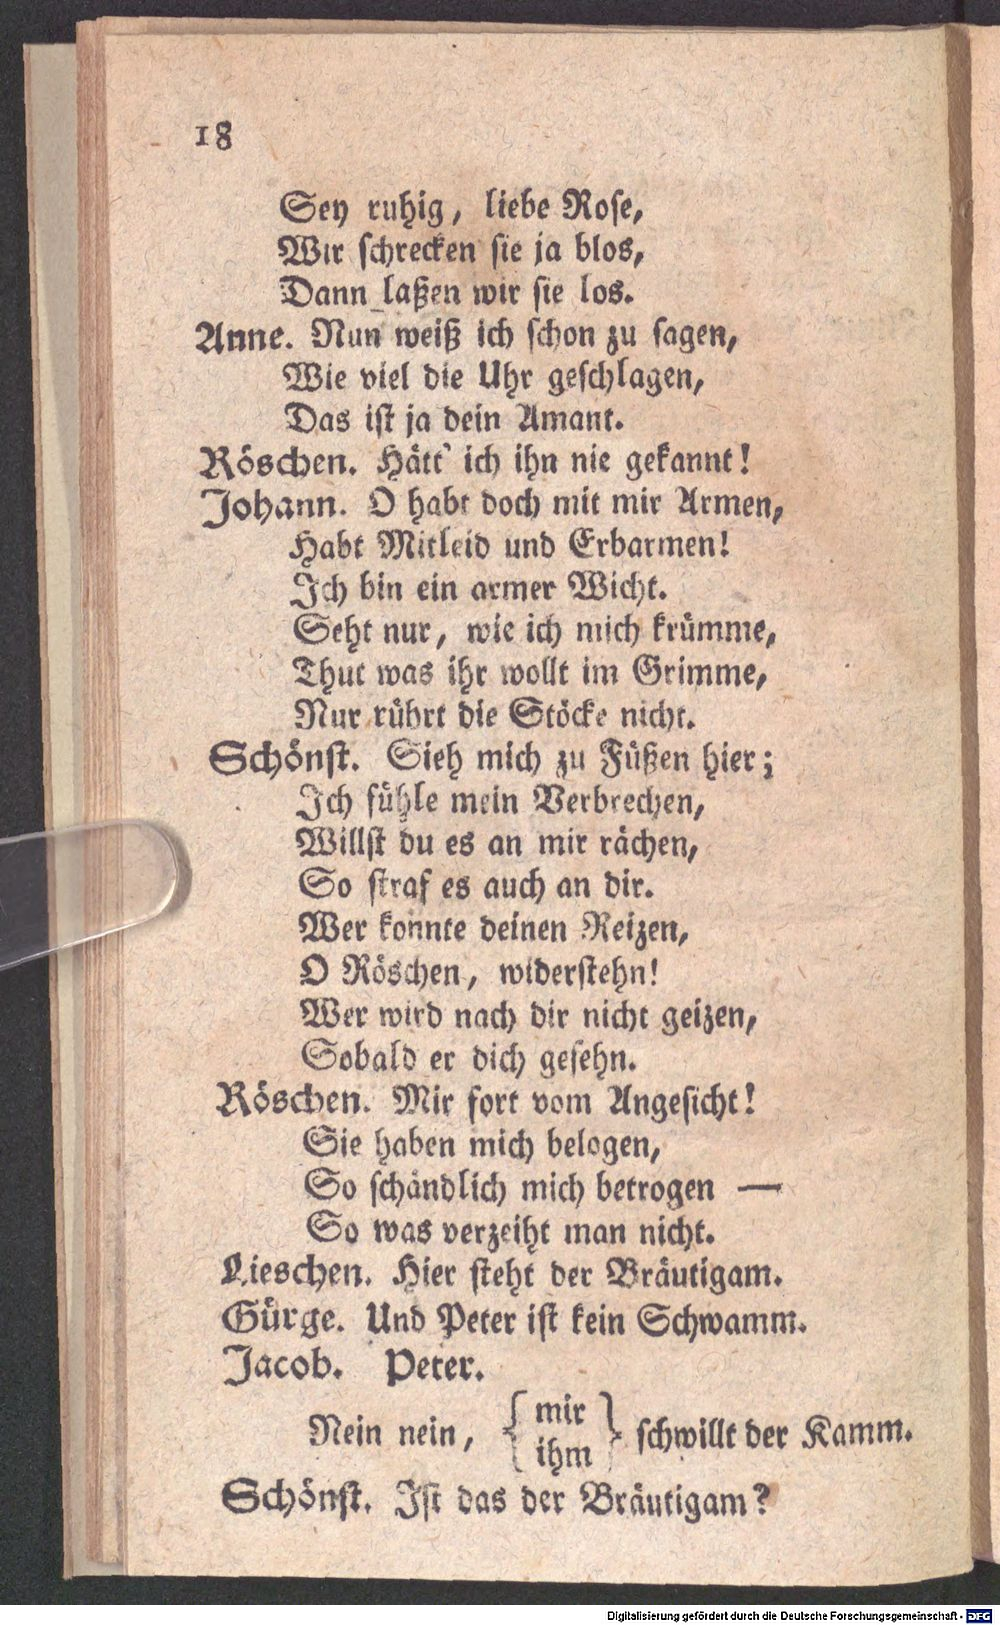 18
Sey ruhig, liebe Rose,
Wir schrecken sie ja blos,
Dann laßen wir sie los.
Anne. Nun weiß ich schon zu sagen,
Wie viel die Uhr geschlagen,
Das ist ja dein Amant.
Röschen. Hätt' ich ihn nie gekannt!
Johann. O habt doch mit mir Armen,
Habt Mitleid und Erbarmen!
Ich bin ein armer Wicht.
Seht nur, wie ich mich krümme,
Thut was ihr wollt im Grimme,
Nur rührt die Stöcke nicht.
Schönst. Sieh mich zu Füßen hier;
Ich fühle mein Verbrechen,
Willst du es an mir rächen,
So straf es auch an dir.
Wer konnte deinen Reizen,
O Röschen, widerstehn!
Wer wird nach dir nicht geizen,
Sobald er dich gesehn.
Röschen. Mir fort vom Angesicht!
Sie haben mich belogen,
So schändlich mich betrogen —
So was verzeiht man nicht.
Lieschen. Hier steht der Bräutigam.
Gürge. Und Peter ist kein Schwamm.
Jacob. Peter.
Nein nein, { mir ihm } schwillt der Kamm.
Schönst. Ist das der Bräutigam?
Digitalisierung gefördert durch die Deutsche Forschungsgemeinschaft - DFG